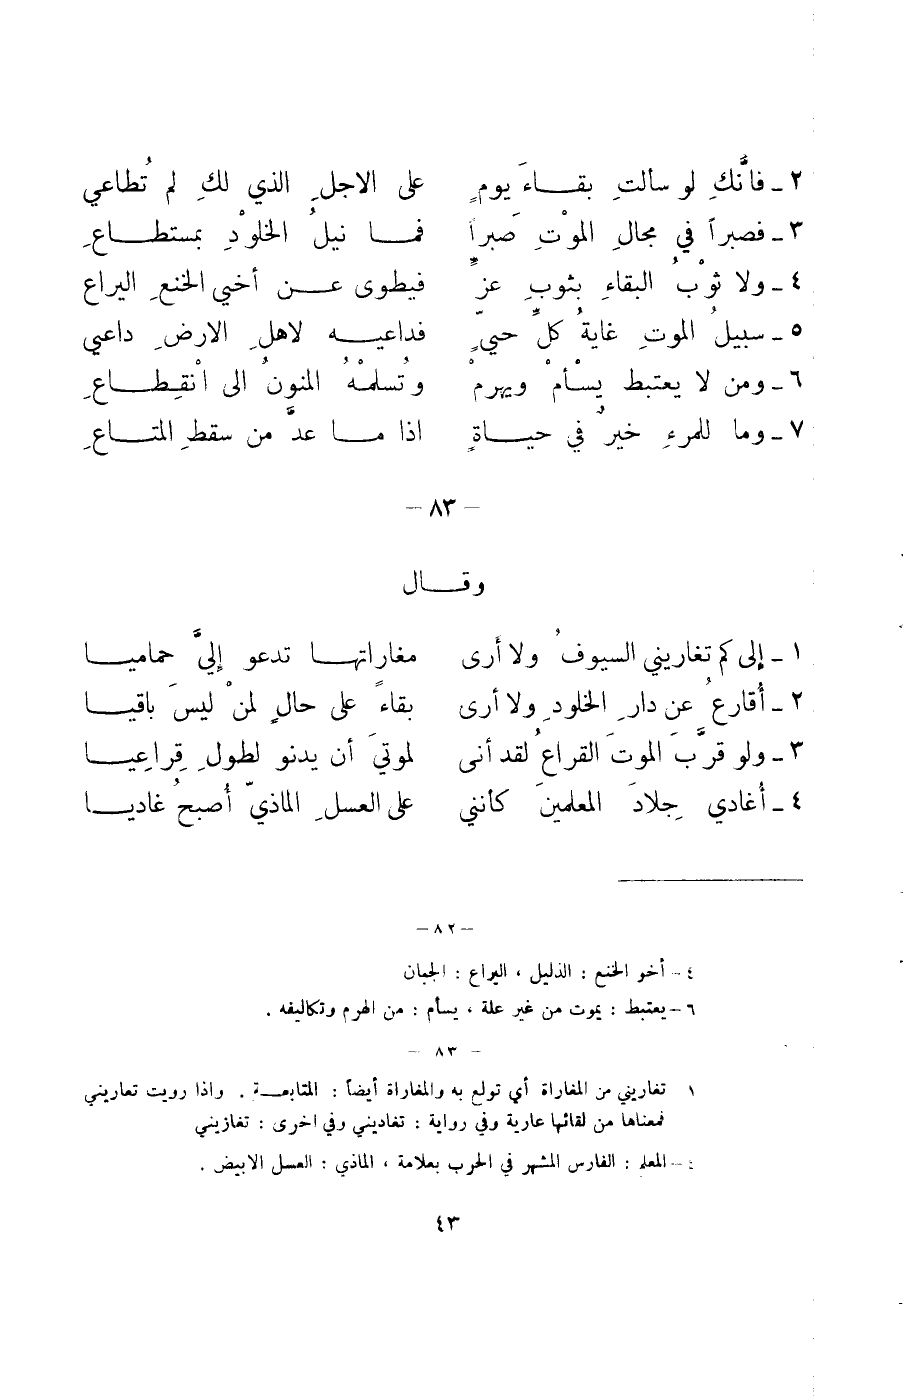 ٢ ــ فأنَّكِ لو سألتِ بقـــاءَ يومٍ على الاجلِ الذي لكِ لم تُطاعي
٣ ــ فصبراً في مجالِ الموْتِ صَبراً فمـــا نيلُ الخلودِ بمستطـــاعِ
٤ ــ ولا ثوْبُ البقاءِ بثوبِ عزٍّ فيطوى عـــن أخي الخنعِ اليراعِ
٥ ــ سبيلُ الموتِ غايةُ كلِّ حيٍّ فداعيـــه لاهلِ الارضِ داعي
٦ ــ ومن لا يعتبط يسْأمْ ويهرمْ وتُسلمْهُ المنونُ الى انْقِطـــاعِ
٧ ــ وما للمرءِ خيرٌ في حيـــاةٍ اذا مـــا عدَّ من سقطِ المتـــاعِ
– ٨٣ –
وقـــال
١ ــ إلى كم تغاريني السيوفُ ولا أرى مغاراتهـــا تدعو إليَّ حماميـــا
٢ ــ أُقارعُ عن دارِ الخلودِ ولا أرى بقاءً على حالٍ لمنْ ليسَ باقيـــا
٣ ــ ولو قرَّبَ الموتَ القراعُ لقد أنى لموتيَ أن يدنو لطولِ قِراعيـــا
٤ ــ أُغادي جِلادَ المعلمينَ كأنني على العسلِ الماذيّ أُصبحُ غاديـــا
– ٨٢ –
٤ – أخو الخنع : الذليل ، اليراع : الجبان
٦ – يعتبط : يموت من غير علة ، يسأم : من الهرم وتكاليفه .
– ٨٣ –
١ تغاريني من المغاراة أي تولع به والمغاراة أيضاً : المتابعـــة . واذا رويت تعاريني
فمعناها من لقائها عارية وفي رواية : تغاديني وفي اخرى : تغازيني
٤ – المعلم : الفارس المشهر في الحرب بعلامة ، الماذي : العسل الابيض .
٤٣